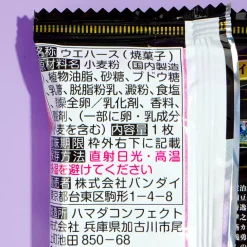 名称 ウエハース（焼菓子）
原材料名 小麦粉（国内製造
、植物油脂、砂糖、ブドウ糖
乳糖、脱脂粉乳、澱粉、食塩
全卵／乳化剤、香料、
（一部に卵・乳成分
麦を含む） 内容量 1枚
期限 枠外右下に記載
方法 直射日光・高温
を避けてください
株式会社バンダイ
都台東区駒形1-4-8
ハマダコンフェクト
社 兵庫県加古川市尾
町池田 850-68